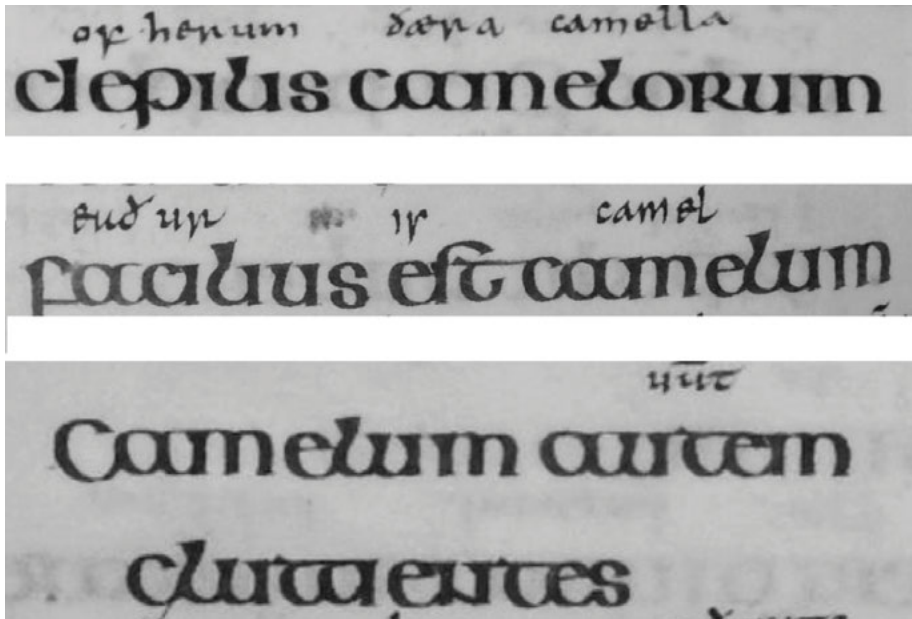 of herum ðæra camella
de pilis camelorum
euð ur is camel
facilius est camelum
uūt
Camelum autem
gluttientes